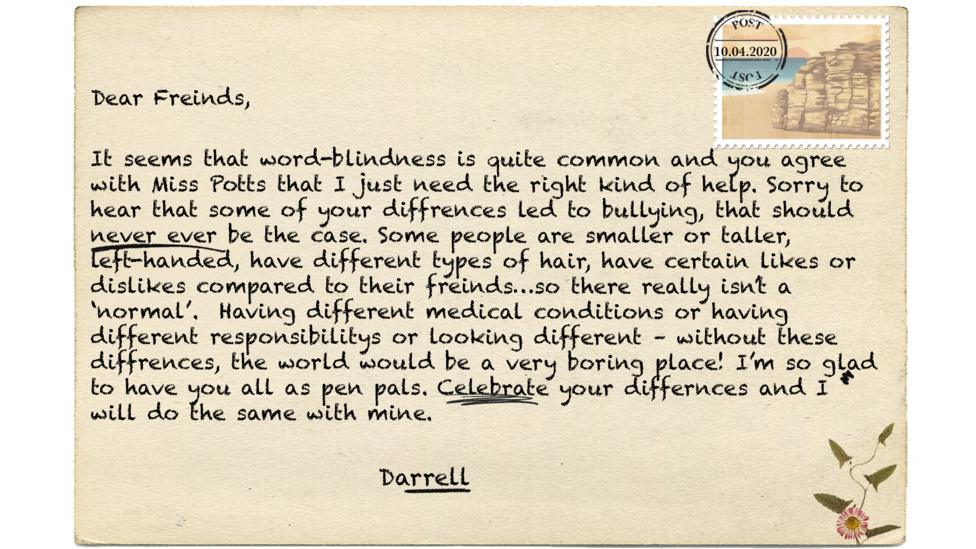 POST
10.04.2020
POST
Dear Freinds,
It seems that word-blindness is quite common and you agree
with Miss Potts that I just need the right kind of help. Sorry to
hear that some of your diffrences led to bullying, that should
never ever be the case. Some people are smaller or taller,
left-handed, have different types of hair, have certain likes or
dislikes compared to their freinds...so there really isn't a
'normal'. Having different medical conditions or having
different responsibilitys or looking different - without these
diffrences, the world would be a very boring place! I'm so glad
to have you all as pen pals. Celebrate your differnces and I
will do the same with mine.
Darrell